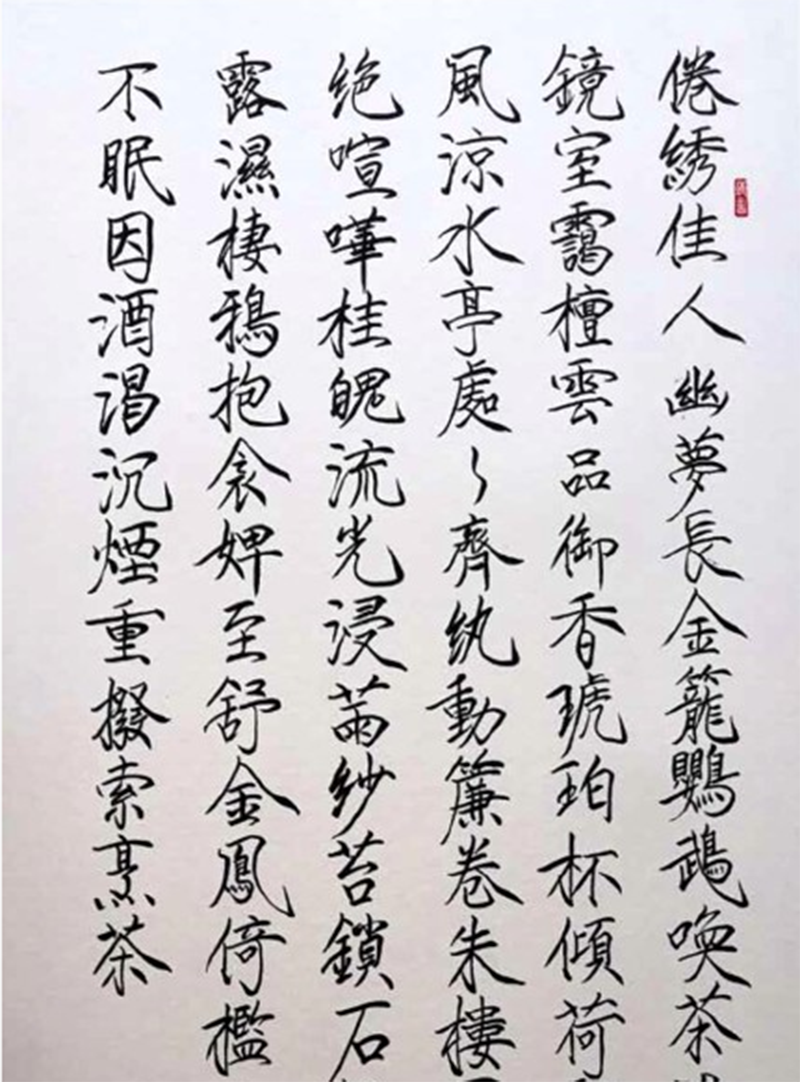 倦綉佳人幽夢長金籠鸚鵡喚茶
鏡室靄檀雲品御香琥珀杯傾荷
風涼水亭處〻齊紈動簾卷朱樓
绝喧嘩桂魄流光浸茜紗苔鎖石
露濕棲鴉抱衾婢至舒金鳳倚檻
不眠因酒渴沉煙重撥索烹茶